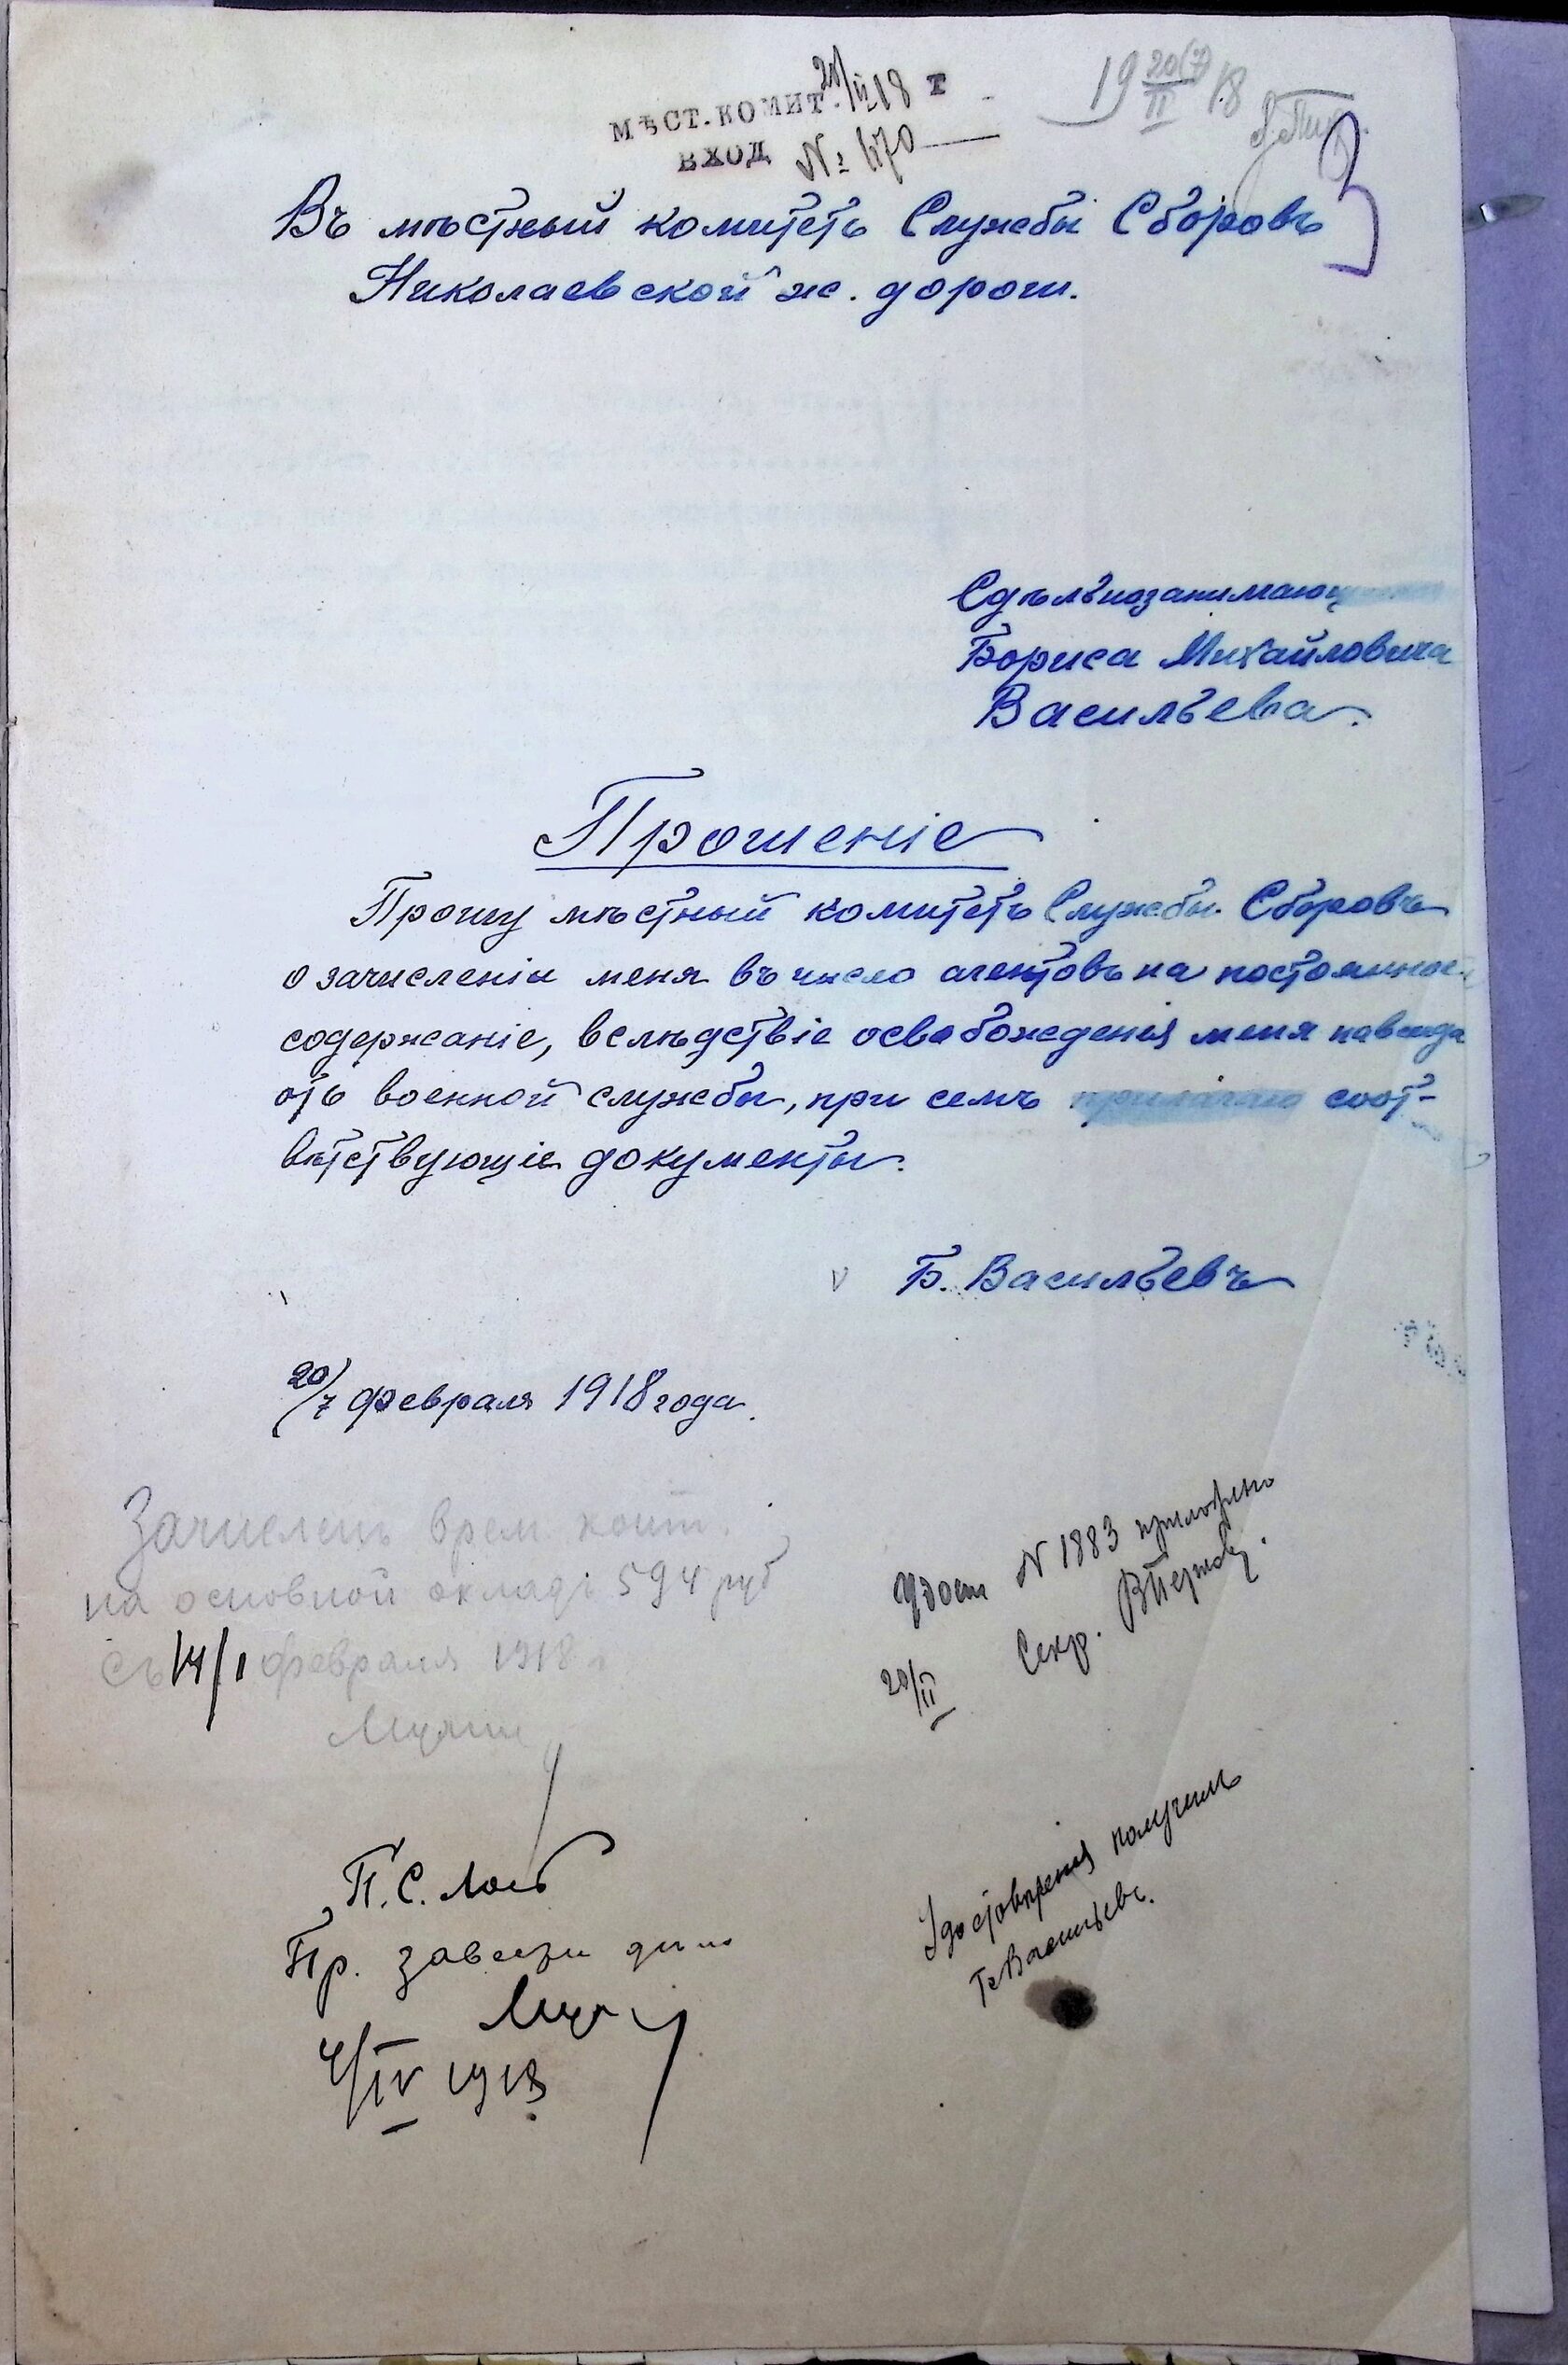 МѢСТ. КОМИТ. 20/II 1918 г
ВХОД № 670
19 20(7)/II 18
3
Въ мѣстный комитетъ Службы Сборовъ
Николаевской ж. дороги.
Сдѣльнозанимающ
Бориса Михайловича
Васильева.
Прошеніе
Прошу мѣстный комитетъ Службы Сборовъ
о зачисленіи меня въ число агентовъ на постоянное
содержаніе, вслѣдствіе освобожденія меня навсегда
отъ военной службы, при семъ прилагаю соот-
вѣтствующіе документы.
Б. Васильевъ
20/7 февраля 1918 года.
Зачисленъ врем. конт.
на основной окладъ 594 руб
съ 14/1 февраля 1918 г
Удост N 1883 приложено
20/II Секр.
П. С.
Пр. завести дѣло
4/IV 1918
Удостовѣренія получилъ
Б Васильевъ.